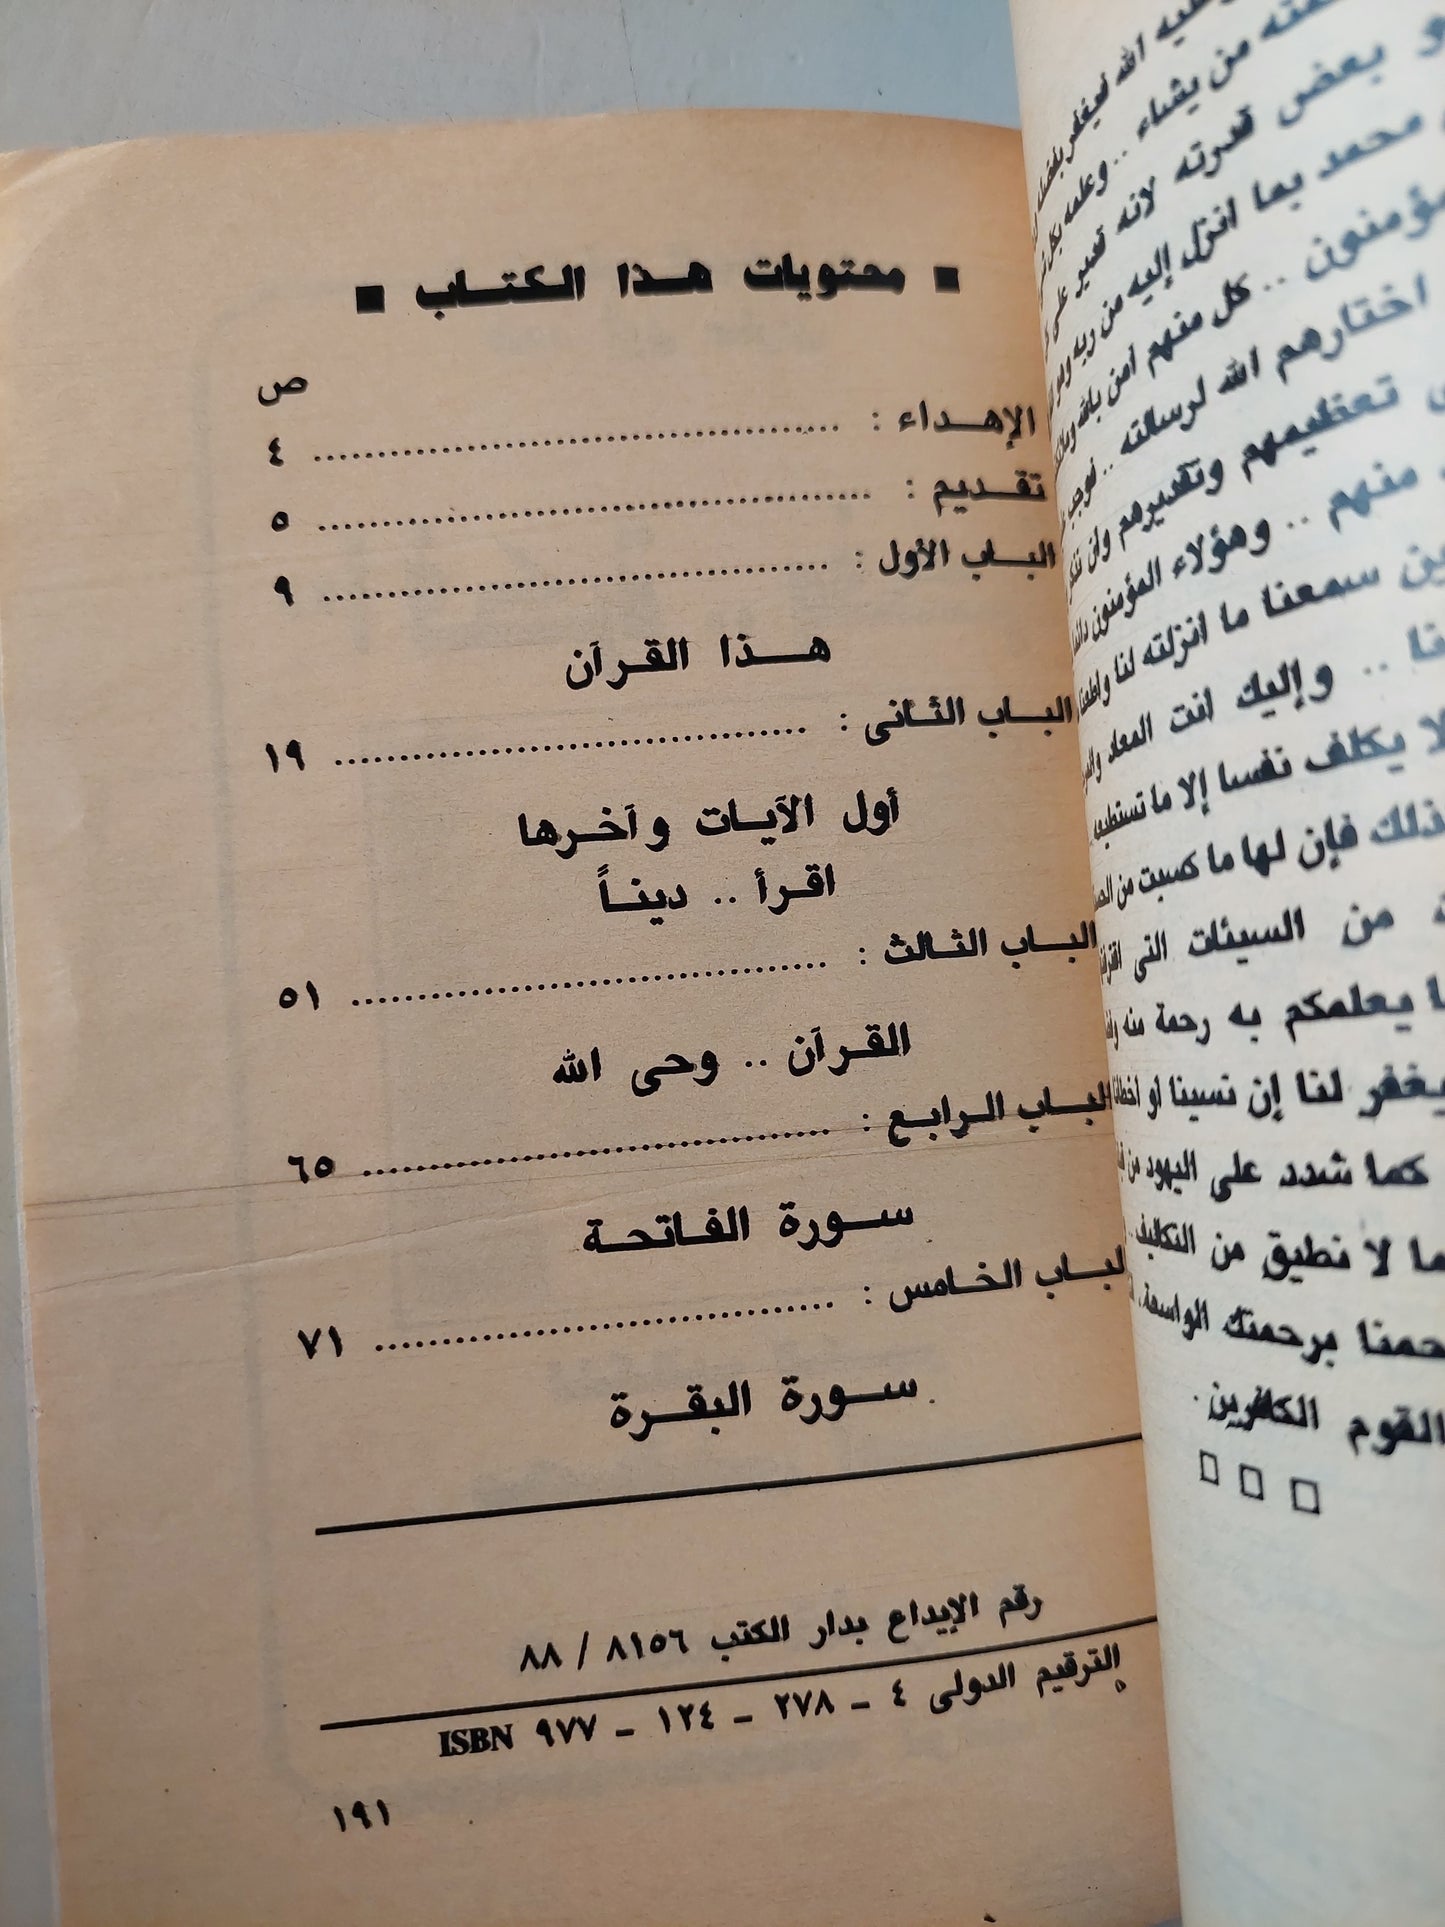 ■ محتويات هذا الكتاب ■
ص
الإهداء : ........................................ ٤
تقديم : ........................................ ٥
الباب الأول : ........................................ ٩
هذا القرآن
الباب الثانى : ........................................ ١٩
أول الآيات وآخرها
اقرأ .. ديناً
الباب الثالث : ........................................ ٥١
القرآن .. وحى الله
الباب الرابع : ........................................ ٦٥
سورة الفاتحة
الباب الخامس : ........................................ ٧١
سورة البقرة
رقم الإيداع بدار الكتب ٨١٥٦ / ٨٨
الترقيم الدولى ٤ – ٢٧٨ – ١٢٤ – ٩٧٧ ISBN
١٩١
من يشاء .. وعلمه بكل
بعض قدرته لانه قدير على
محمد بما انزل إليه من ربه
.. كل منهم امن بالله
اختارهم الله لرسالته ..
تعظيمهم وتقديرهم وان
منهم .. وهؤلاء المؤمنون
سمعنا ما انزلته لنا واطعنا
.. وإليك انت المعاد
لا يكلف نفسا إلا ما تستطيعه
ذلك فإن لها ما كسبت من
من السيئات التى
يعلمكم به رحمة منه
يغفر لنا إن نسينا او
كما شدد على اليهود من
ما لا نطيق من التكاليف ..
برحمتك الواسعة،
القوم الكافرين.
□ □ □